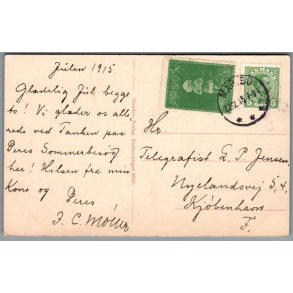 Julen 1915
Glædelig Jul begge
to! Vi glæder os alle-
rede ved Tanken paa
Deres Sommerbesøg
her! Hilsen fra min
Kone og Deres
J. C. Møller
Hr.
Telegrafist L. P. Jensen,
Nyelandsvej 5, 4.
Kjøbenhavn
F.
DANMARK
5